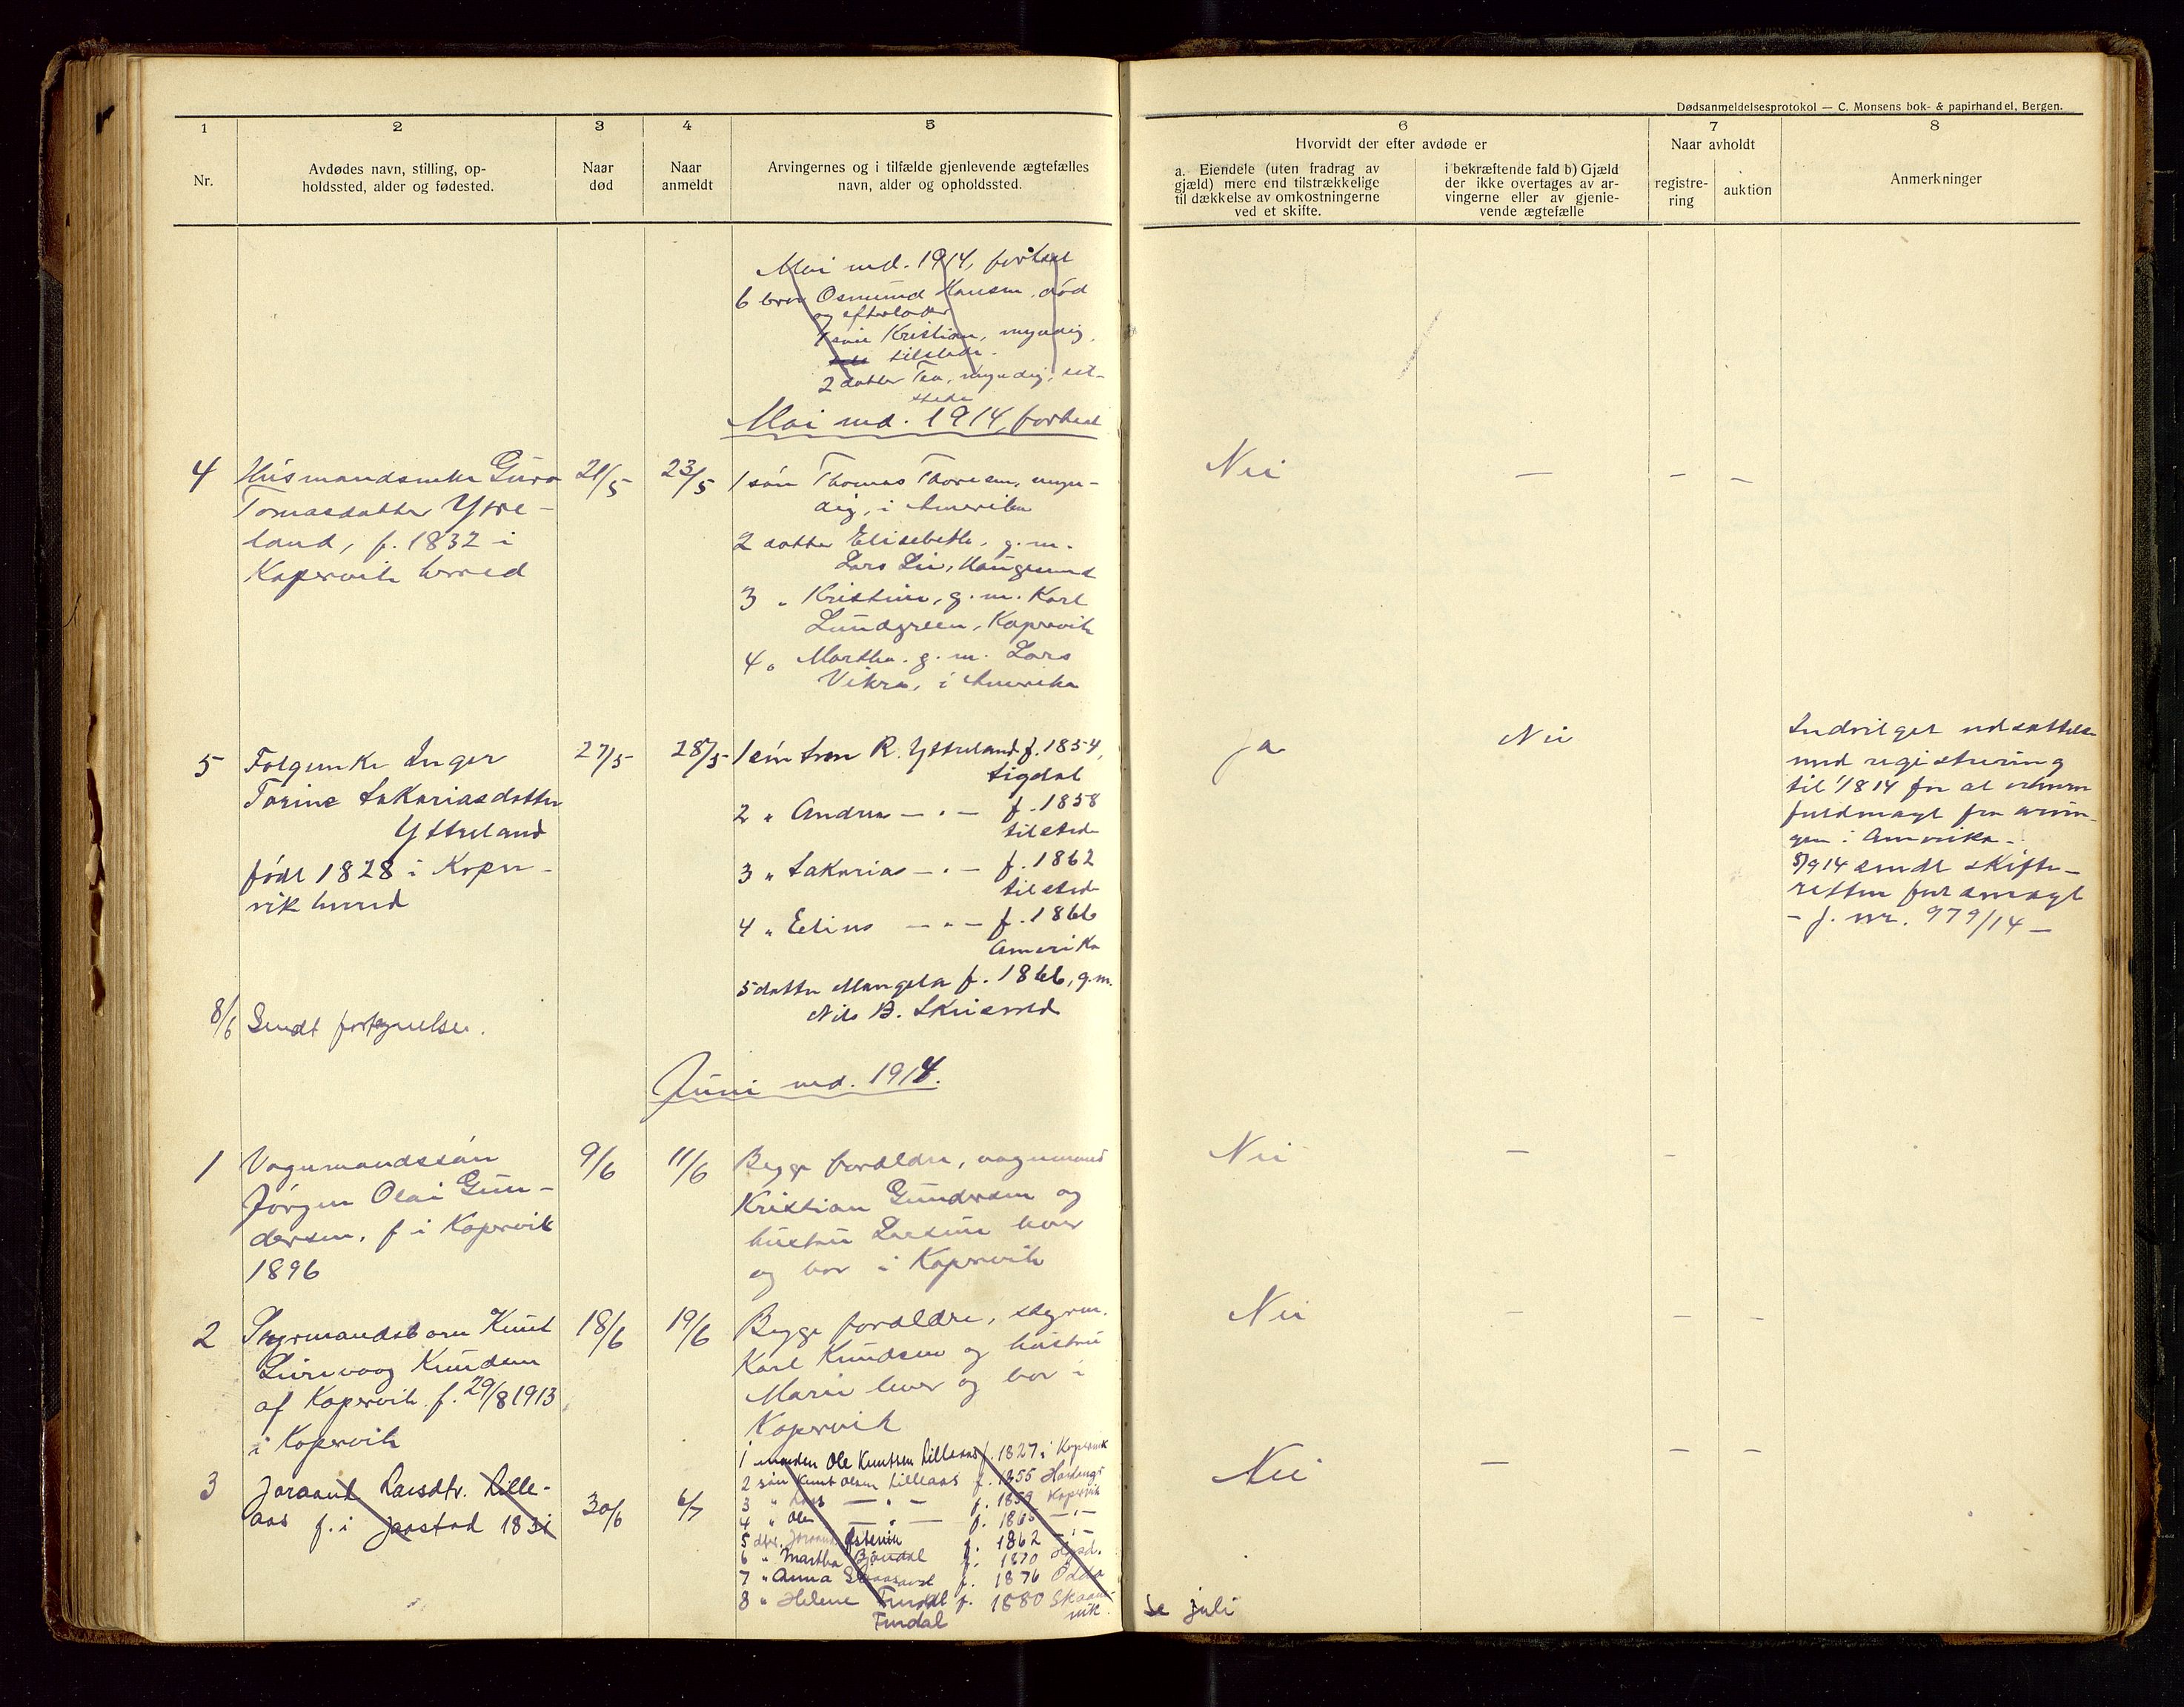 Dødsanmeldelsesprotokol — C. Monsens bok- & papirhandel, Bergen.
1
2
3
4
5
6
7
8
Nr.
Avdødes navn, stilling, op-
holdssted, alder og fødested.
Naar
død
Naar
anmeldt
Arvingernes og i tilfælde gjenlevende ægtefælles
navn, alder og opholdssted.
Hvorvidt der efter avdøde er
a. Eiendele (uten fradrag av
gjæld) mere end tilstrækkelige
til dækkelse av omkostningerne
ved et skifte.
i bekræftende fald b) Gjæld
der ikke overtages av ar-
vingerne eller av gjenle-
vende ægtefælle
Naar avholdt
registre-
ring
auktion
Anmerkninger
Mai md. 1914, fortsat
6 bror Osmund Hansen, død
og efterlader
1 søn Kristian, myndig,
tilstede.
2 datter Tea, myndig, til-
stede
Mai md. 1914, fortsat
4
Husmandsenke Guro
Tomasdatter Ytre-
land, f. 1832 i
Kopervik herred
21/5
23/5
1 søn Thomas Thoresen, myn-
dig, i Amerika
2 datter Elisebeth, g.m.
Lars Lie, Haugesund
3 " Kristine, g.m. Karl
Lundgreen, Kopervik
4 " Martha g.m. Lars
Vikra, i Amerika
Nei
—
—
—
5
Folgenke Inger
Torine Sakariasdatter
Ytreland
født 1828 i Koper-
vik herred
27/5
28/5
1 søn R. Ytreland f. 1854,
Sigdal
2 " Andreas — " — f. 1858
tilsted
3 " Sakarias — " — f. 1862
tilsted
4 " Elius — " — f. 1866
Amerika
5 datter f. 1866, g.m.
Nils B.
Ja
Nei
Indvilget udsættelse
med registrering
til 1/8 14 for at
fuldmagt fra arvin-
gen i Amerika -
5/9 14 sendt skifte-
retten fuldmagt
- j. nr. 979/14 -
8/6 Sendt fortegnelse.
Juni md. 1914.
1
Vognmandssøn
Jørgen Olai Gun-
dersen, f i Kopervik
1896
9/6
11/6
Begge forældre, vognmand
Kristian Gundersen og
hustru lever
og bor i Kopervik
Nei
—
—
2
Styrmandsbarn Knut
Knudsen
af Kopervik f. 29/8 1913
i Kopervik
18/6
19/6
Begge forældre, styrm.
Karl Knudsen og hustru
Marie lever og bor i
Kopervik
Nei
—
—
—
3
Joraand Larsdtr. Lille-
aas f. i Jaastad 1831
30/6
6/7
1 manden Ole Knutsen Lilleaas f. 1827 i Kopervik
2 søn Knut Olsen Lilleaas f. 1855
3 " Lars — " — f. 1859 Kopervik
4 " Ole — " — f. 1865 — " —
5 dtr. Joraand f. 1862 — " —
6 " Martha f. 1870
7 " Anna f. 1876 Odda
8 " Helene f. 1880 Skaane-
vik.
Nei
—
—
—
Se juli